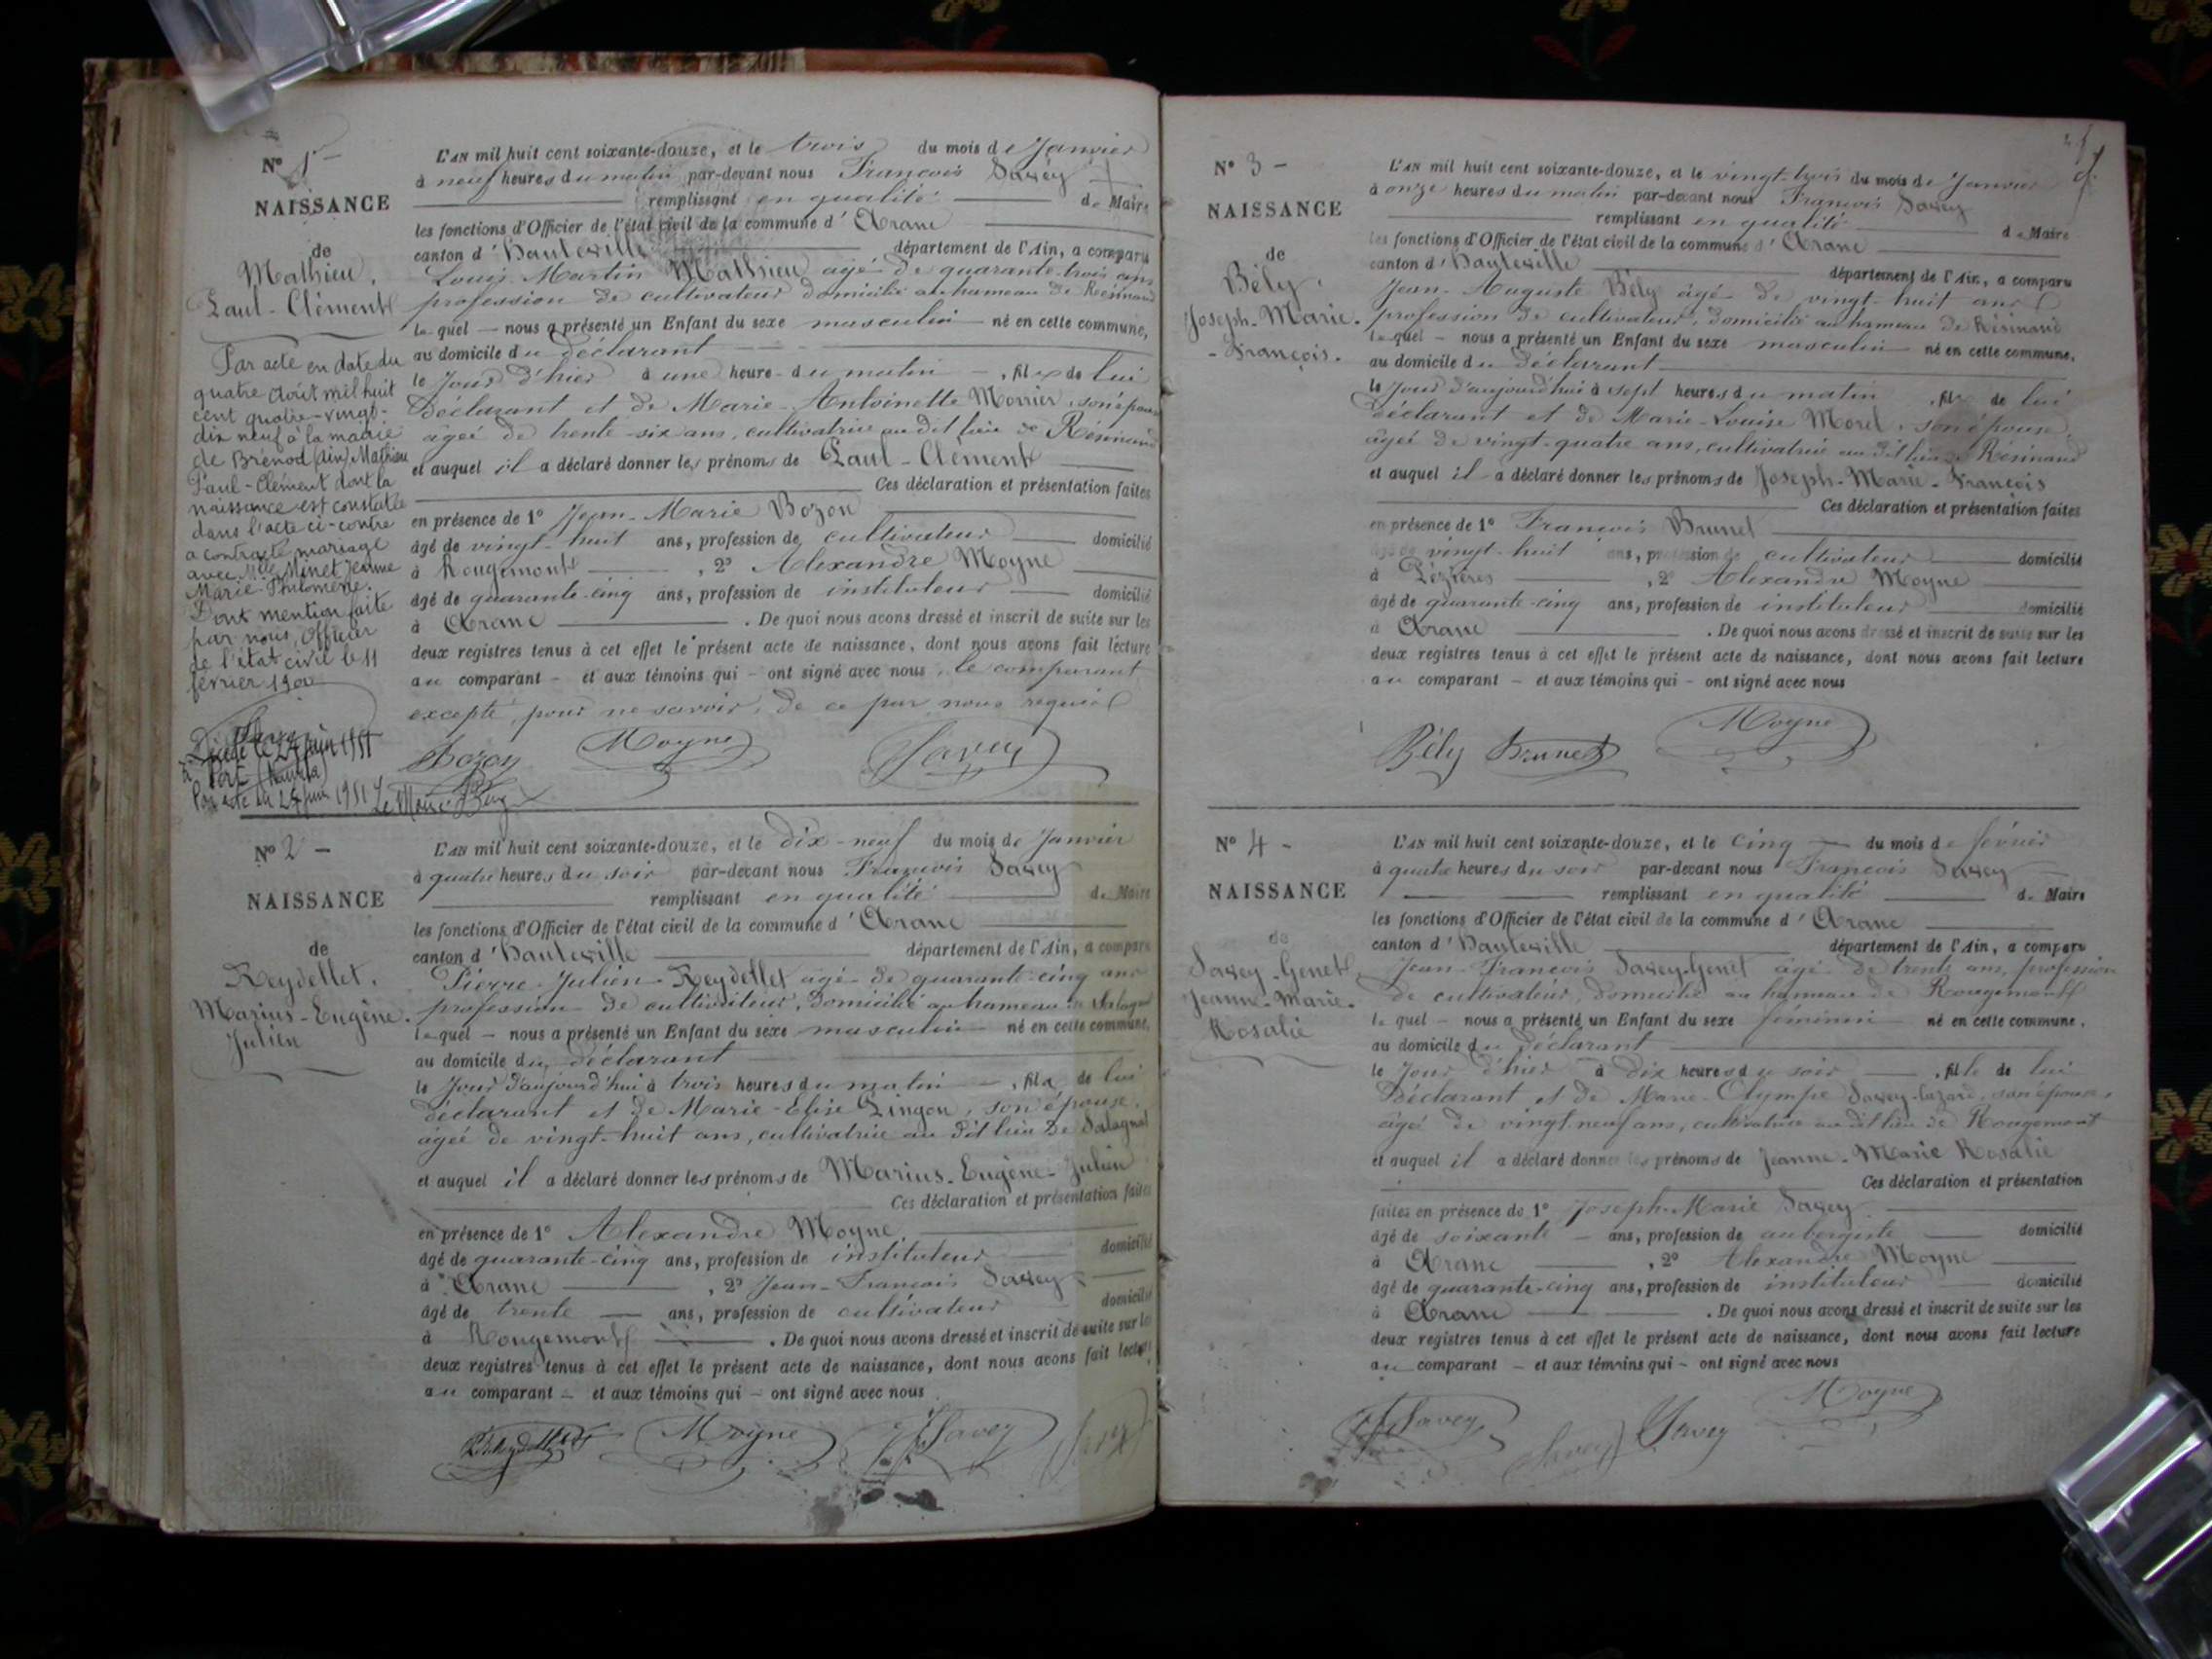 N° 1 -
NAISSANCE
de
Mathieu,
Paul-Clément
Par acte en date du
quatre Août mil huit
cent quatre-vingt-
dix neuf à la mairie
de Brénod (Ain) Mathieu
Paul-Clément dont la
naissance est constatée
dans l'acte ci-contre
a contracté mariage
avec Mlle Minet Jeanne
Marie-Philomène.
Dont mention faite
par nous, Officier
de l'état civil le 11
février 1900
Décédé le 24 juin 1951
à Port
Par acte du 24 juin 1951 Le Maire
L'AN mil huit cent soixante-douze, et le trois du mois de Janvier
à neuf heures du matin par-devant nous François Savey
remplissant en qualité de Maire
les fonctions d'Officier de l'état civil de la commune d'Arane
canton d'Hauteville département de l'Ain, a comparu
Louis-Martin Mathieu âgé de quarante-trois ans
profession de cultivateur domicilié au hameau de Résinand
lequel - nous a présenté un Enfant du sexe masculin né en cette commune,
au domicile du déclarant
le Jour d'hier à une heure du matin, fils de lui
Déclarant et de Marie-Antoinette Monier, son épouse
âgée de trente-six ans, cultivatrice au dit lieu de Résinand
et auquel il a déclaré donner les prénoms de Paul-Clément
Ces déclaration et présentation faites
en présence de 1° Jean-Marie Bozon
âgé de vingt-huit ans, profession de cultivateur domicilié
à Rougemont, 2° Alexandre Moyne
âgé de quarante-cinq ans, profession de instituteur domicilié
à Arane. De quoi nous avons dressé et inscrit de suite sur les
deux registres tenus à cet effet le présent acte de naissance, dont nous avons fait lecture
au comparant - et aux témoins qui - ont signé avec nous, le comparant
excepté, pour ne savoir, de ce par nous requis
Bozon Moyne Savey
N° 2 -
NAISSANCE
de
Reydellet,
Marius-Eugène.
Julien
L'AN mil huit cent soixante-douze, et le dix-neuf du mois de Janvier
à quatre heures du soir par-devant nous François Savey
remplissant en qualité de Maire
les fonctions d'Officier de l'état civil de la commune d'Arane
canton d'Hauteville département de l'Ain, a comparu
Pierre-Julien Reydellet âgé de quarante-cinq ans
profession de cultivateur, domicilié au hameau de Salagnat
lequel - nous a présenté un Enfant du sexe masculin né en cette commune,
au domicile du déclarant
le Jour d'aujourd'hui à trois heures du matin, fils de lui
déclarant et de Marie-Elise Pingon, son épouse,
âgée de vingt-huit ans, cultivatrice au dit lieu de Salagnat
et auquel il a déclaré donner les prénoms de Marius-Eugène-Julien
Ces déclaration et présentation faites
en présence de 1° Alexandre Moyne
âgé de quarante-cinq ans, profession de instituteur domicilié
à Arane, 2° Jean-François Savey
âgé de trente ans, profession de cultivateur domicilié
à Rougemont. De quoi nous avons dressé et inscrit de suite sur les
deux registres tenus à cet effet le présent acte de naissance, dont nous avons fait lecture
au comparant - et aux témoins qui - ont signé avec nous
Reydellet Moyne Savey
N° 3 -
NAISSANCE
de
Bély,
Joseph-Marie.
-François.
L'AN mil huit cent soixante-douze, et le vingt-trois du mois de Janvier
à onze heures du matin par-devant nous François Savey
remplissant en qualité de Maire
les fonctions d'Officier de l'état civil de la commune d'Arane
canton d'Hauteville département de l'Ain, a comparu
Jean-Auguste Bély âgé de vingt-huit ans
profession de cultivateur, domicilié au hameau de Résinand
lequel - nous a présenté un Enfant du sexe masculin né en cette commune,
au domicile du Déclarant
le Jour d'aujourd'hui à sept heures du matin, fils de lui
déclarant et de Marie-Louise Morel, son épouse
âgée de vingt-quatre ans, cultivatrice au dit lieu de Résinand
et auquel il a déclaré donner les prénoms de Joseph-Marie-François
Ces déclaration et présentation faites
en présence de 1° François Brunet
âgé de vingt-huit ans, profession de cultivateur domicilié
à Pézières, 2° Alexandre Moyne
âgé de quarante-cinq ans, profession de instituteur domicilié
à Arane. De quoi nous avons dressé et inscrit de suite sur les
deux registres tenus à cet effet le présent acte de naissance, dont nous avons fait lecture
au comparant - et aux témoins qui - ont signé avec nous
Bély Brunet Moyne
N° 4 -
NAISSANCE
de
Savey-Genet,
Jeanne-Marie.
Rosalie
L'AN mil huit cent soixante-douze, et le cinq du mois de février
à quatre heures du soir par-devant nous François Savey
remplissant en qualité de Maire
les fonctions d'Officier de l'état civil de la commune d'Arane
canton d'Hauteville département de l'Ain, a comparu
Jean-François Savey-Genet âgé de trente ans, profession
de cultivateur, domicilié au hameau de Rougemont
lequel - nous a présenté un Enfant du sexe féminin né en cette commune,
au domicile du Déclarant
le Jour d'hier à dix heures du soir, fille de lui
Déclarant et de Marie-Olympe Savey-Lazare, son épouse,
âgée de vingt-neuf ans, cultivatrice au dit lieu de Rougemont
et auquel il a déclaré donner les prénoms de Jeanne-Marie Rosalie
Ces déclaration et présentation
faites en présence de 1° Joseph-Marie Savey
âgé de soixante ans, profession de aubergiste domicilié
à Arane, 2° Alexandre Moyne
âgé de quarante-cinq ans, profession de instituteur domicilié
à Arane. De quoi nous avons dressé et inscrit de suite sur les
deux registres tenus à cet effet le présent acte de naissance, dont nous avons fait lecture
au comparant - et aux témoins qui - ont signé avec nous
Savey Savey Savey Moyne